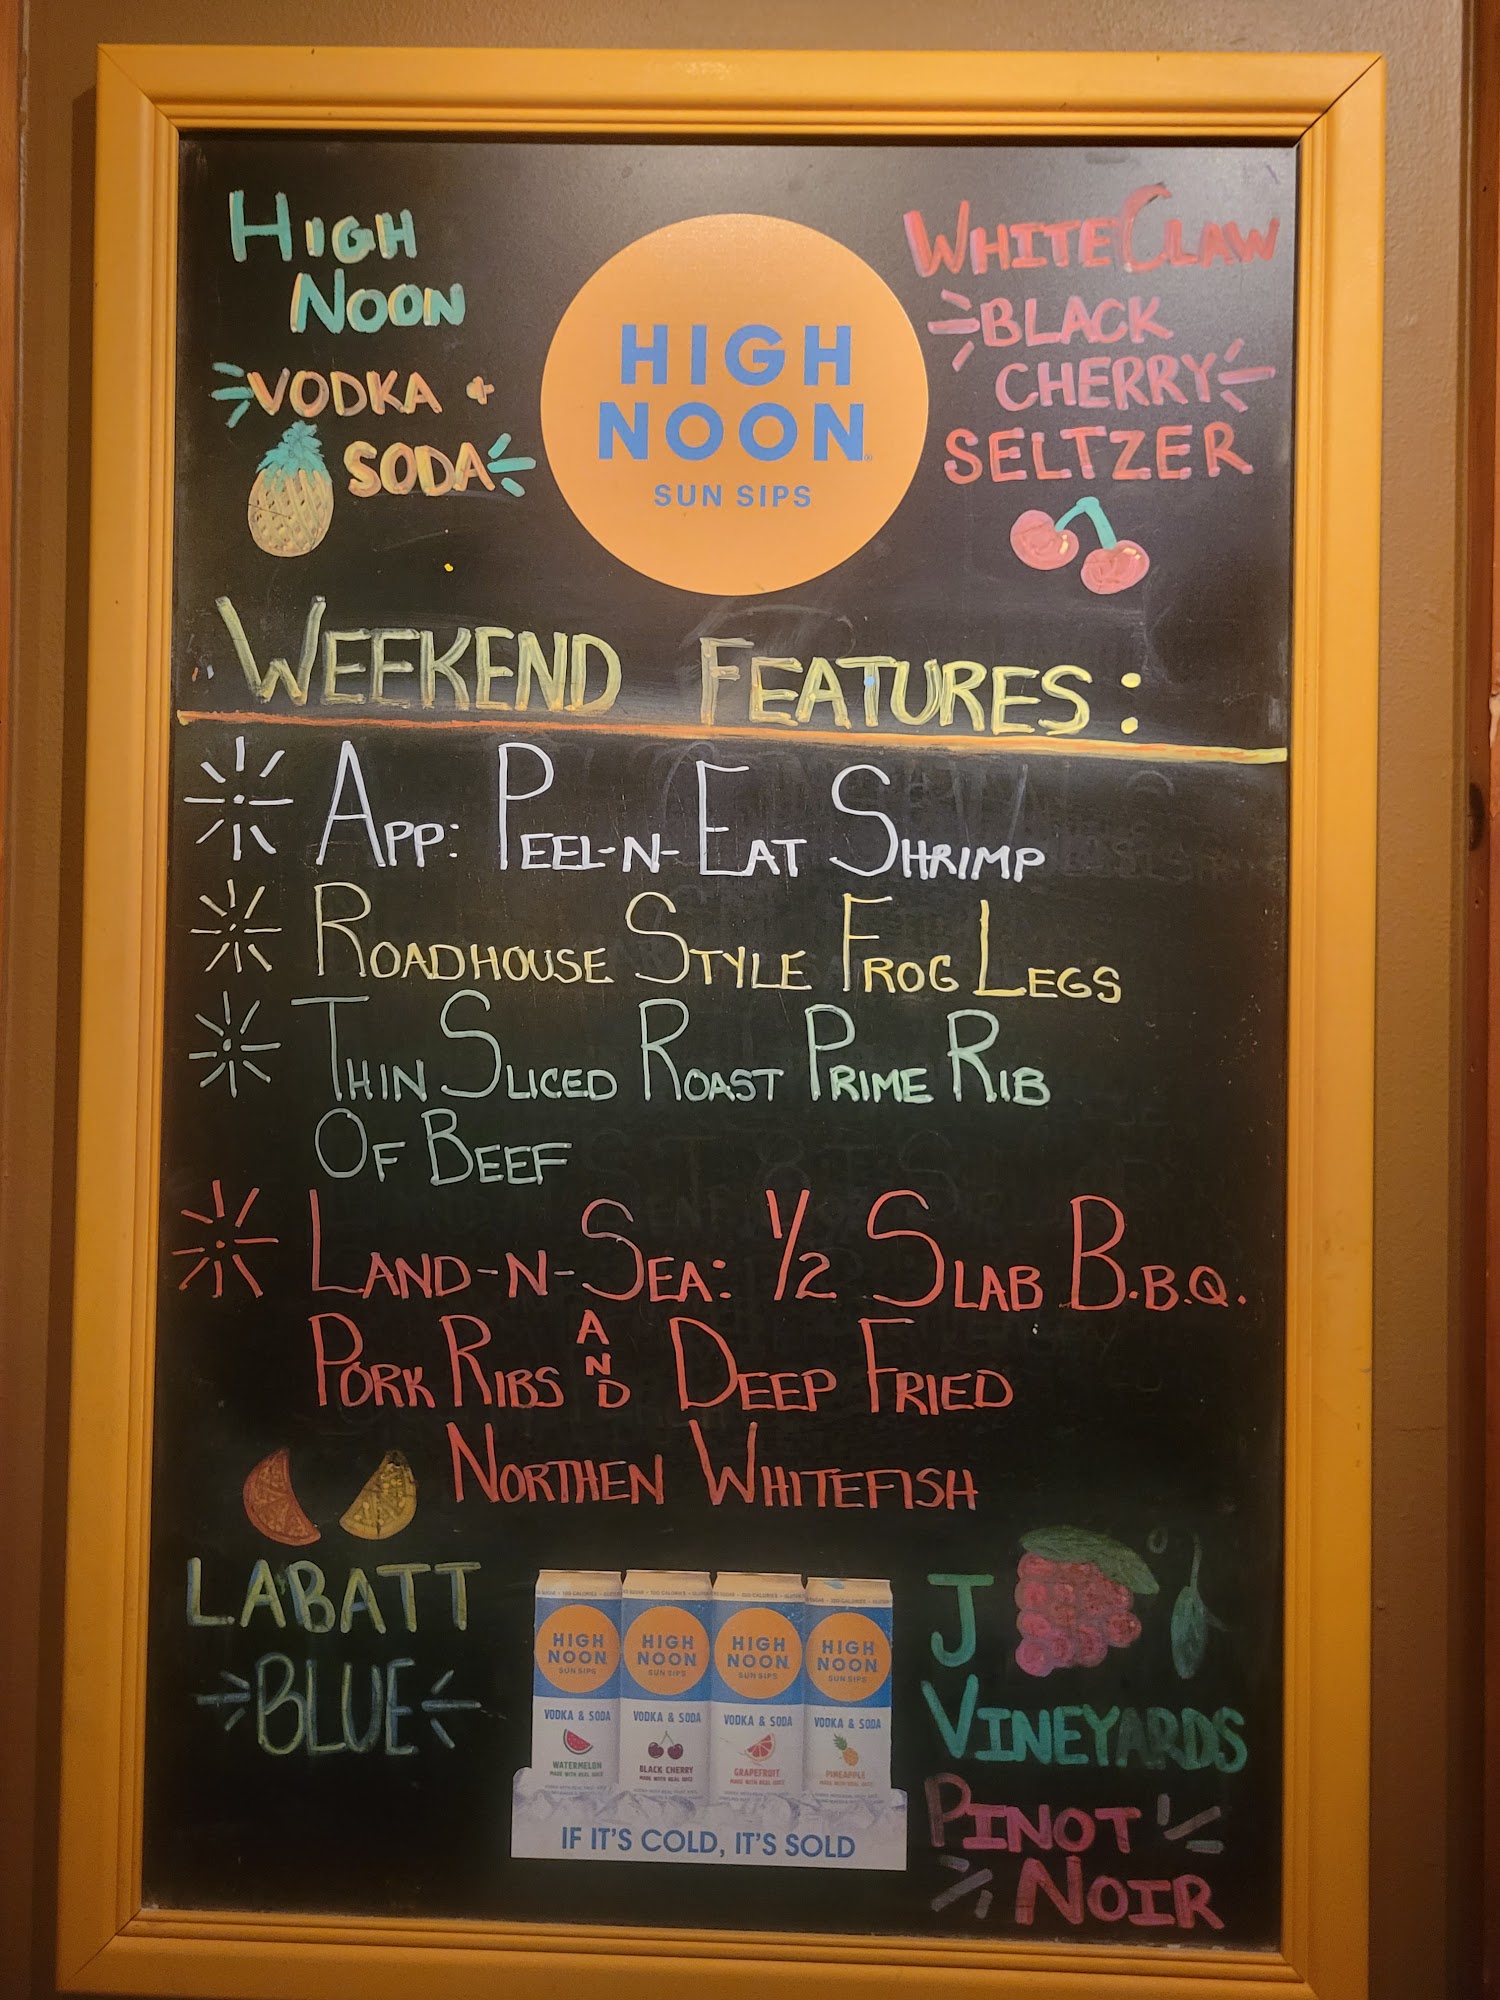 HIGH
NOON
VODKA +
SODA
HIGH
NOON
SUN SIPS
WHITE CLAW
BLACK
CHERRY
SELTZER
WEEKEND FEATURES:
APP: PEEL-N-EAT SHRIMP
ROADHOUSE STYLE FROG LEGS
THIN SLICED ROAST PRIME RIB
OF BEEF
LAND-N-SEA: 1/2 SLAB B.B.Q.
PORK RIBS AND DEEP FRIED
NORTHEN WHITEFISH
LABATT
BLUE
HIGH
NOON
SUN SIPS
VODKA & SODA
WATERMELON
MADE WITH REAL JUICE
HIGH
NOON
SUN SIPS
VODKA & SODA
BLACK CHERRY
MADE WITH REAL JUICE
HIGH
NOON
SUN SIPS
VODKA & SODA
GRAPEFRUIT
MADE WITH REAL JUICE
HIGH
NOON
SUN SIPS
VODKA & SODA
PINEAPPLE
MADE WITH REAL JUICE
IF IT'S COLD, IT'S SOLD
J
VINEYARDS
PINOT
NOIR